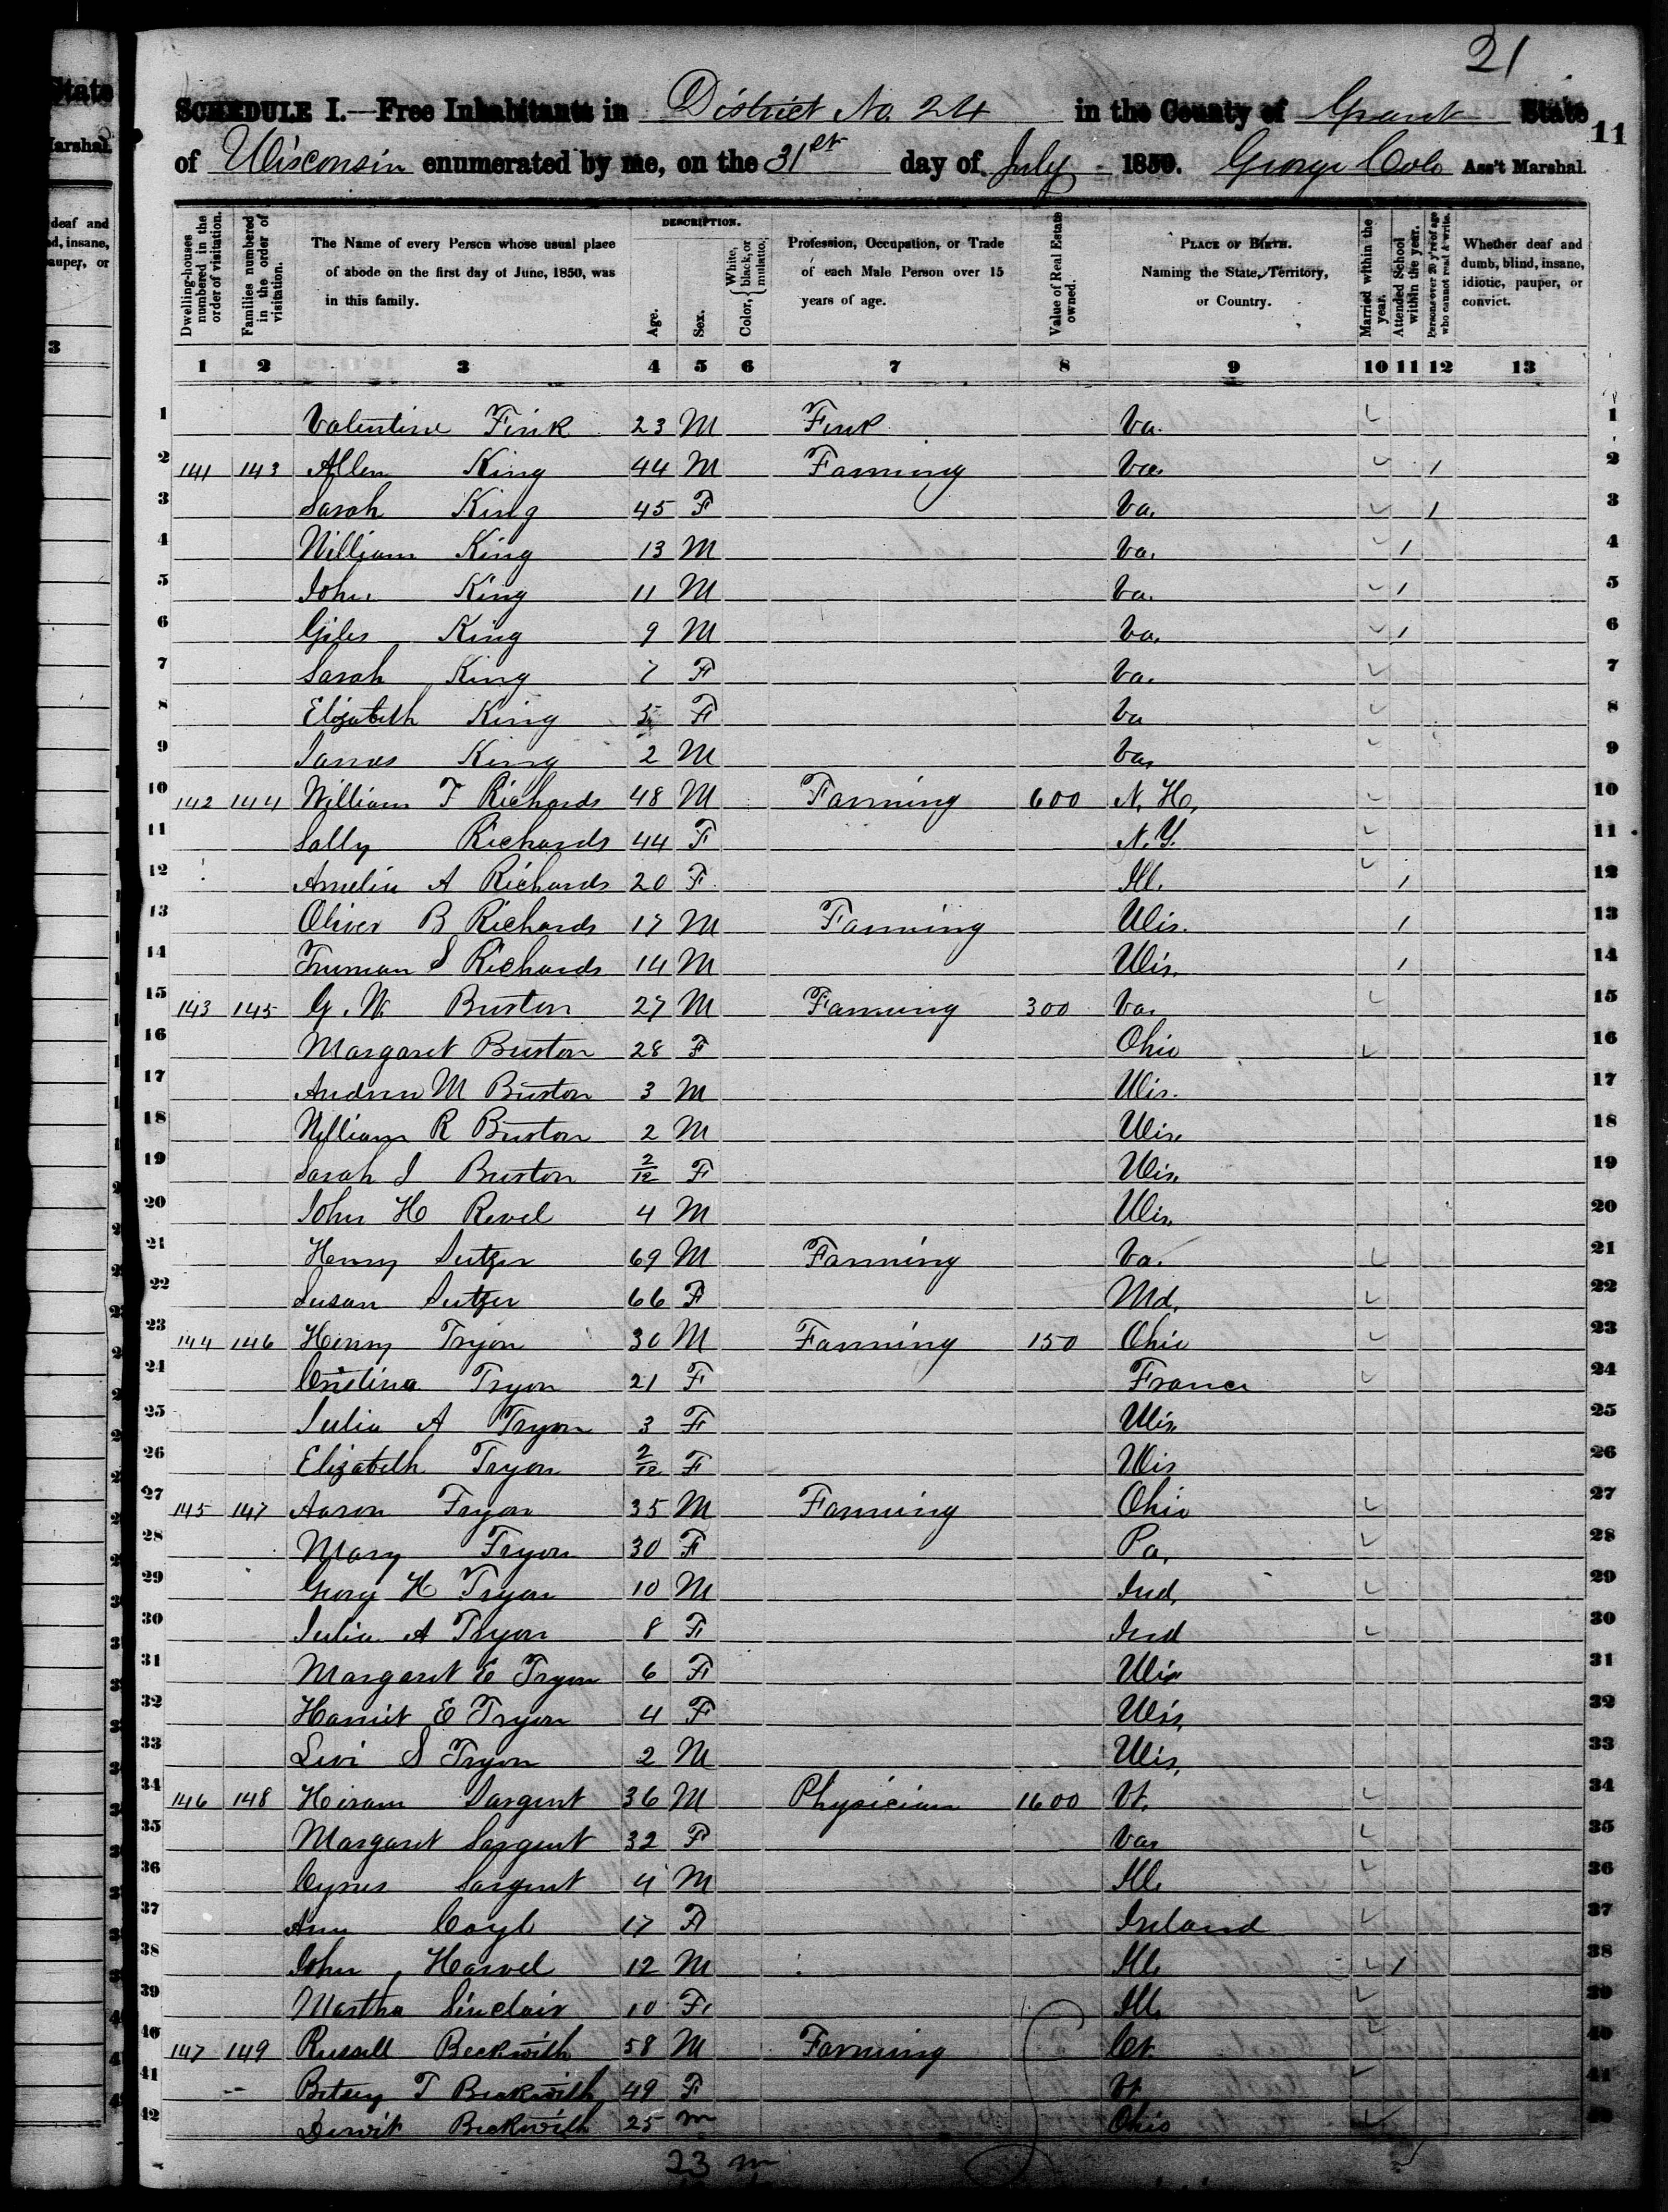 21
SCHEDULE I.—Free Inhabitants in District No. 24 in the County of Grant State
11
of Wisconsin enumerated by me, on the 31st day of July 1850. George Cole Ass't Marshal.
Dwelling-houses numbered in the order of visitation.
Families numbered in the order of visitation.
The Name of every Person whose usual place of abode on the first day of June, 1850, was in this family.
DESCRIPTION.
Age.
Sex.
Color, { White, black, or mulatto.
Profession, Occupation, or Trade of each Male Person over 15 years of age.
Value of Real Estate owned.
PLACE OF BIRTH. Naming the State, Territory, or Country.
Married within the year.
Attended School within the year.
Persons over 20 y'rs of age who cannot read & write.
Whether deaf and dumb, blind, insane, idiotic, pauper, or convict.
1 2 3 4 5 6 7 8 9 10 11 12 13
1 Valentine Fink 23 M Fink Va. 1
2 141 143 Allen King 44 M Farming Va. 1 2
3 Sarah King 45 F Va. 1 3
4 William King 13 M Va. 1 4
5 John King 11 M Va. 1 5
6 Giles King 9 M Va. 1 6
7 Sarah King 7 F Va. 7
8 Elizabeth King 5 F Va 8
9 James King 2 M Va. 9
10 142 144 William T Richards 48 M Farming 600 N. H. 10
11 Sally Richards 44 F N. Y. 11
12 Amelia A Richards 20 F Ill. 1 12
13 Oliver B Richards 17 M Farming Wis. 1 13
14 Truman S Richards 14 M Wis. 1 14
15 143 145 G. W. Burton 27 M Farming 300 Va. 15
16 Margaret Burton 28 F Ohio 16
17 Andrew M Burton 3 M Wis. 17
18 William R Burton 2 M Wis. 18
19 Sarah J Burton 2/12 F Wis. 19
20 John H Revel 4 M Wis. 20
21 Henry Sutzer 69 M Farming Va. 21
22 Susan Sutzer 66 F Md. 22
23 144 146 Henry Tryon 30 M Farming 150 Ohio 23
24 Cristina Tryon 21 F France 24
25 Julia A Tryon 3 F Wis. 25
26 Elizabeth Tryon 2/12 F Wis 26
27 145 147 Aaron Tryon 35 M Farming Ohio 27
28 Mary Tryon 30 F Pa. 28
29 Georg H Tryon 10 M Ind. 29
30 Julia A Tryon 8 F Ind 30
31 Margaret E Tryon 6 F Wis 31
32 Harriet E Tryon 4 F Wis. 32
33 Levi S Tryon 2 M Wis. 33
34 146 148 Hiram Sargent 36 M Physician 1600 Vt. 34
35 Margaret Sargent 32 F Va. 35
36 Cyrus Sargent 4 M Ill. 36
37 Ann Coyl 17 F Ireland 37
38 John Harvel 12 M Ill. 1 38
39 Martha Sinclair 10 F Ill. 39
40 147 149 Russell Beckwith 58 M Farming Ct. 40
41 Betsey T Beckwith 49 F Vt 41
42 Dewit Beckwith 25 m Ohio
23 m